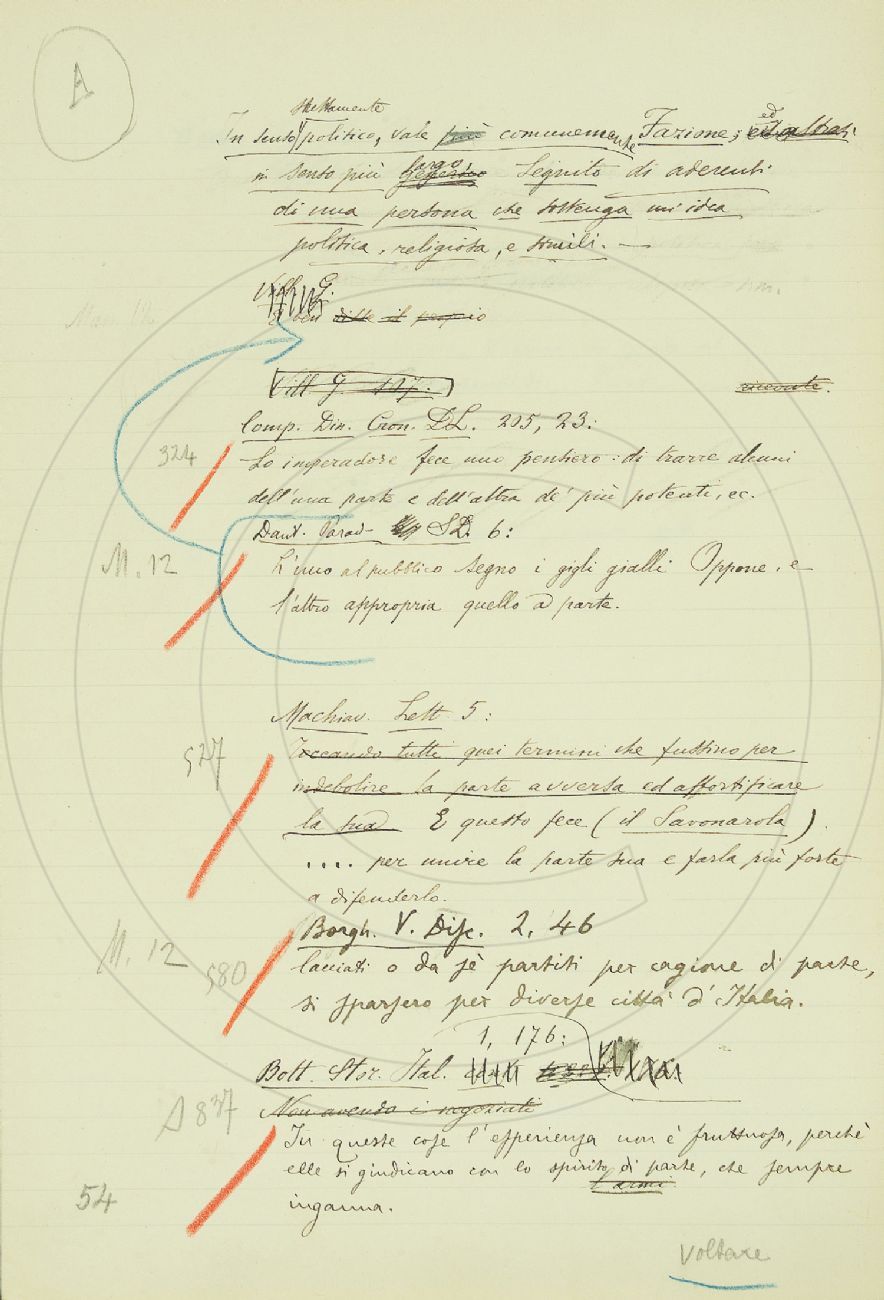 A
strettamente
In senso politico, vale più comunemente Fazione; ed
in senso più largo Seguito di aderenti
di una persona che sostenga un'idea
politica, religiosa, e simili. —
Vill. G.
E ben disse il proprio
Vill G 117. riccorate.
Comp. Din. Cron. DL. 205, 23:
324
Lo imperadore fece uno pensiero: di trarre alcuni
dell'una parte e dell'altra de' più potenti, ec.
Dant. Parad. SD. 6:
M. 12
L'uno al pubblico segno i gigli gialli Oppone, e
l'altro appropria quello a parte.
Machiav. Lett. 5:
527
Toccando tutti quei termini che fussino per
indebolire la parte avversa ed affortificare
la sua E questo fece (il Savonarola)
.... per unire la parte sua e farla più forte
a difenderlo.
Borgh. V. Disc. 2, 46
M. 12
580
Cacciati o da sè partiti per cagione di parte,
si sparsero per diverse città d'Italia.
1, 176:
Bott. Stor. Ital.
A 837
Non avendo i negoziati
In queste cose l'esperienza non è fruttuosa, perchè
elle si giudicano con lo spirito di parte, che sempre
l'armi
inganna.
54
Voltare